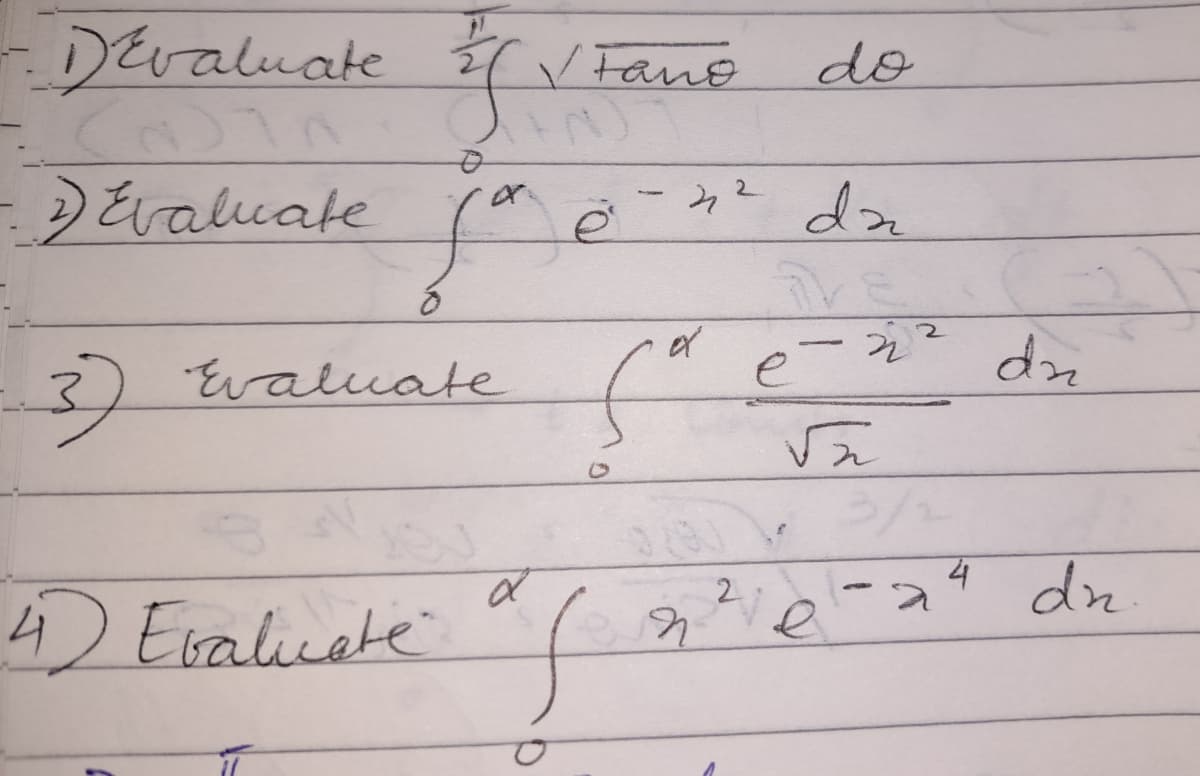 1) Evaluate π/2 ∫ 0 √tanθ dθ
2) Evaluate ∫ 0 α e^-x² dx
3) Evaluate ∫ 0 α e^-x² / √x dx
4) Evaluate α ∫ 0 x² e^-x⁴ dx.